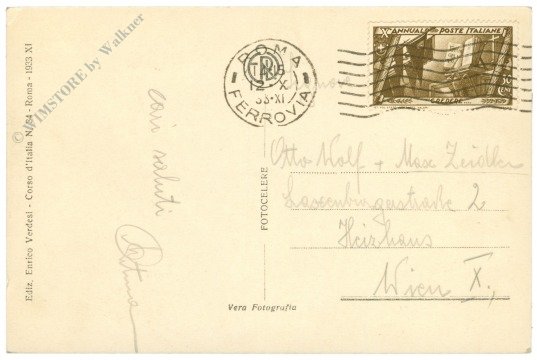 © WIMSTORE by Walkner
Ediz. Enrico Verdesi - Corso d'Italia N. 84 - Roma - 1933 XI
cari saluti
FOTOCELERE
Vera Fotografia
ROMA
FERROVIA
12 X
33-XI
X ANNUALE POSTE ITALIANE
CREDERE
Otto Wolf + Max Zeidler
Laxenburgerstraße 2
Heizhaus
Wien X.